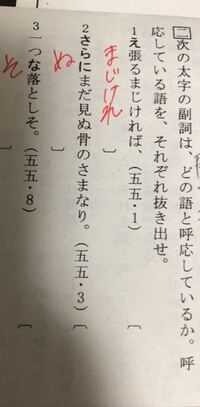 二 次の太字の副詞は、どの語と呼応しているか。呼
応している語を、それぞれ抜き出せ。
1 え張るまじければ、(五五・1)
〔 〕
まじけれ
2 さらにまだ見ぬ骨のさまなり。(五五・3)
〔 〕
ぬ
3 一つな落としそ。(五五・8)
〔 〕
そ